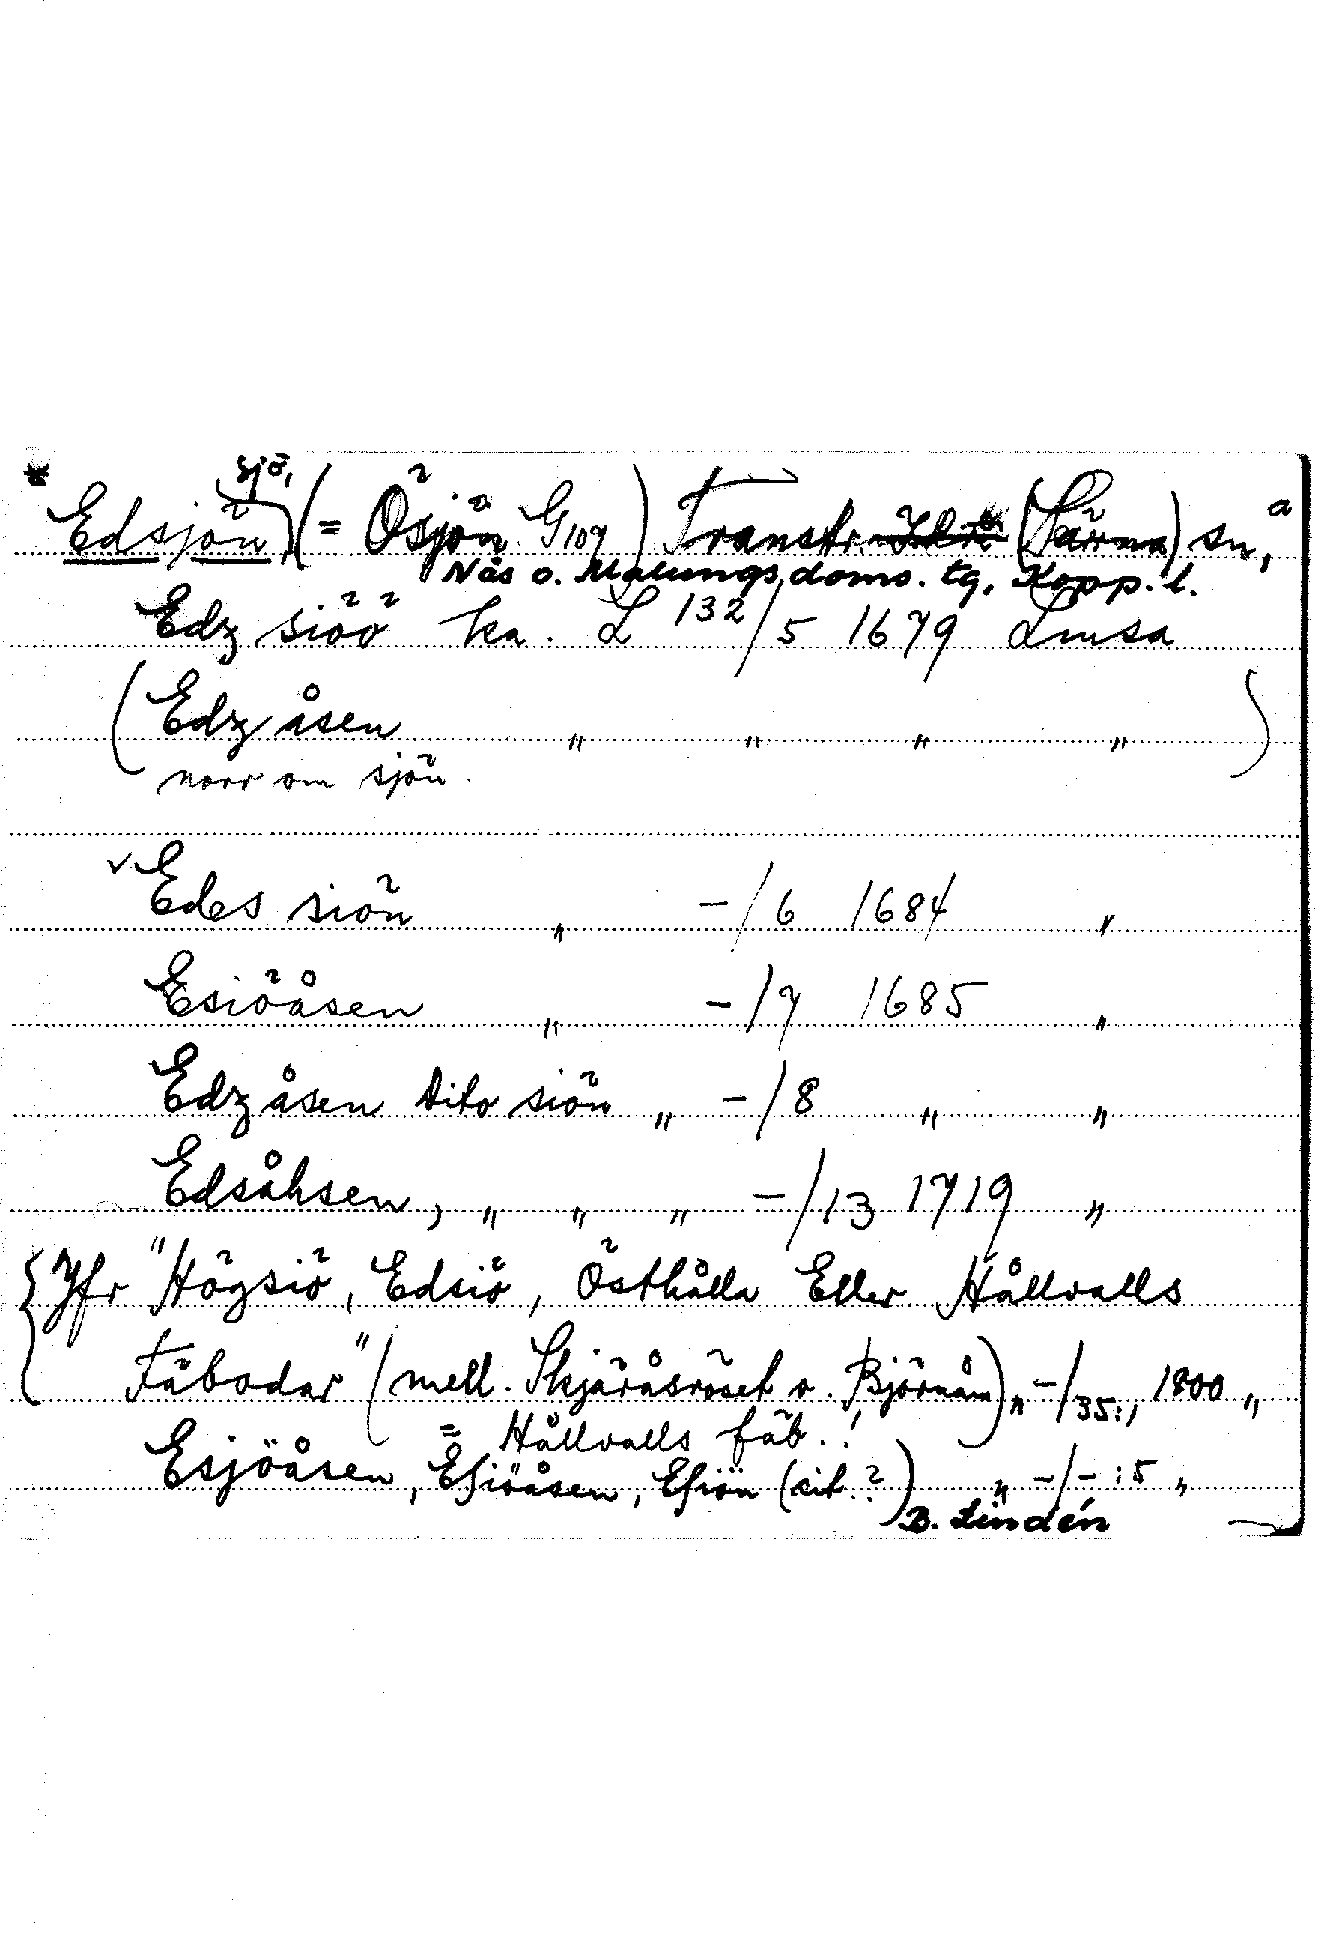 * Edsjön, sjö, (= Ösjön G109) Transtr. (Särna) sn, a
Nås o. Malungs doms. tg, Kopp. l.
Edz siöö ka. L 132/5 1679 Lmsa
(Edz åsen " " " " )
norr om sjön.
√ Edes siön " -/6 1684 "
Esiöåsen " -/7 1685 "
Edz åsen dito siön " -/8 " "
Edsåhsen, " " " -/13 1719 "
{Jfr "Högsiö, Edsiö, Östhålla Eller Hållvalls
Fäbodar" (mell. Skjäråsröset o. Björnåm) " -/35:, 1800 "
= Hållvalls fäb..!
Esjöåsen, Esiöåsen, Esiön (sit.?) " -/-:5 "
B. Lindén